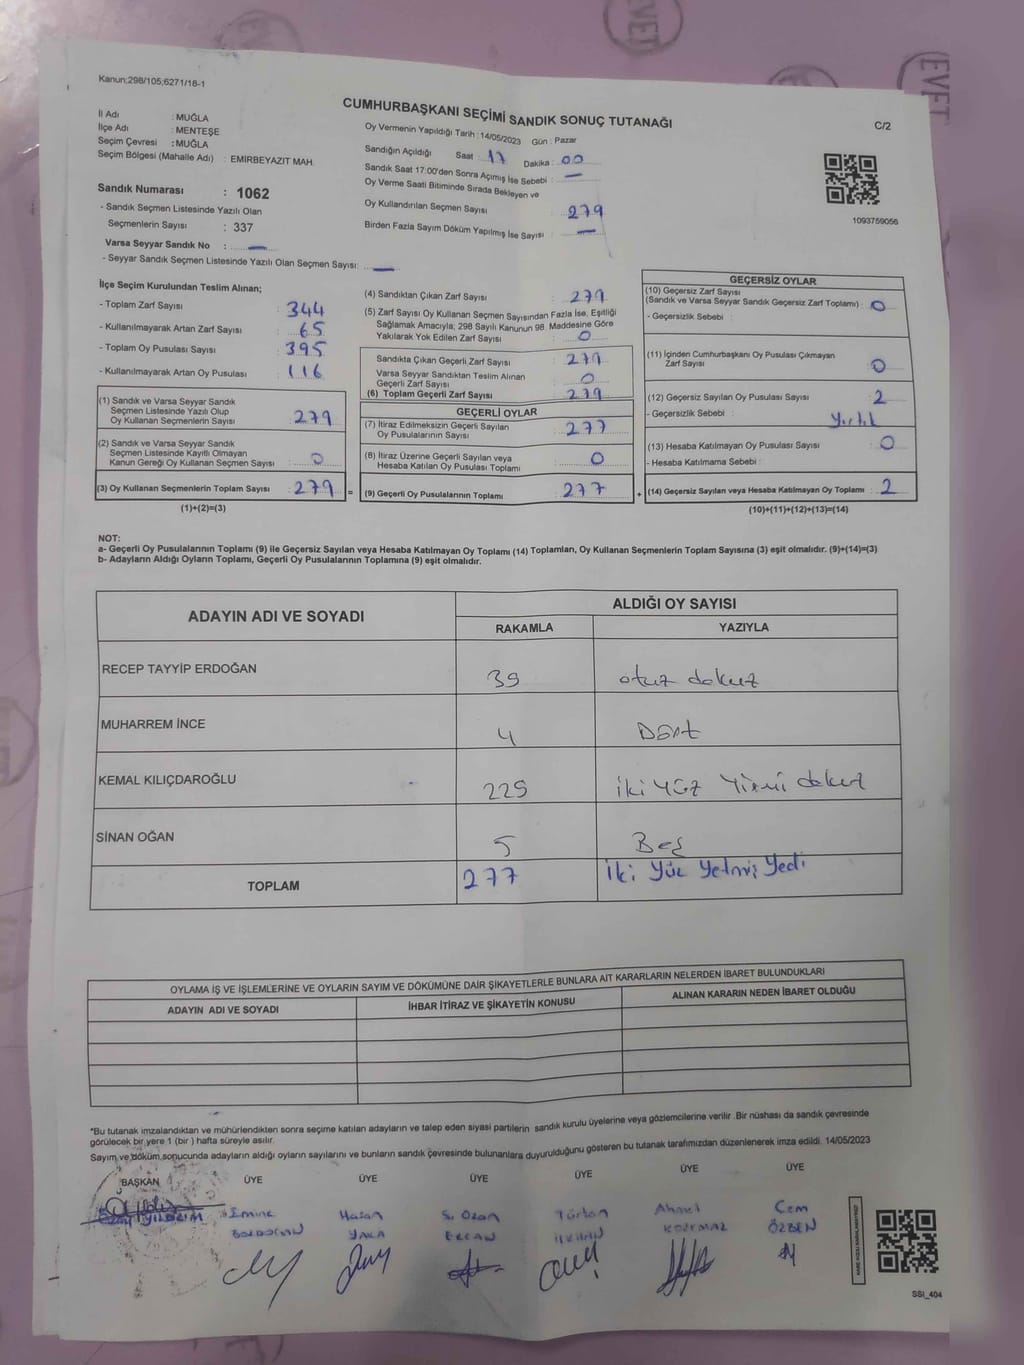 Kanun;298/105;6271/18-1
CUMHURBAŞKANI SEÇİMİ SANDIK SONUÇ TUTANAĞI
C/2
İl Adı : MUĞLA
İlçe Adı : MENTEŞE
Seçim Çevresi : MUĞLA
Seçim Bölgesi (Mahalle Adı) : EMİRBEYAZIT MAH.
Sandık Numarası : 1062
- Sandık Seçmen Listesinde Yazılı Olan
Seçmenlerin Sayısı : 337
Varsa Seyyar Sandık No : —
- Seyyar Sandık Seçmen Listesinde Yazılı Olan Seçmen Sayısı: —
Oy Vermenin Yapıldığı Tarih : 14/05/2023 Gün : Pazar
Sandığın Açıldığı Saat : 17 Dakika : 00
Sandık Saat 17:00'den Sonra Açımış İse Sebebi : —
Oy Verme Saati Bitiminde Sırada Bekleyen ve
Oy Kullandırılan Seçmen Sayısı 279
Birden Fazla Sayım Döküm Yapılmış İse Sayısı : —
1093759056
İlçe Seçim Kurulundan Teslim Alınan;
- Toplam Zarf Sayısı : 344
- Kullanılmayarak Artan Zarf Sayısı : 65
- Toplam Oy Pusulası Sayısı : 395
- Kullanılmayarak Artan Oy Pusulası : 116
(1) Sandık ve Varsa Seyyar Sandık
Seçmen Listesinde Yazılı Olup
Oy Kullanan Seçmenlerin Sayısı : 279
(2) Sandık ve Varsa Seyyar Sandık
Seçmen Listesinde Kayıtlı Olmayan
Kanun Gereği Oy Kullanan Seçmen Sayısı : 0
(3) Oy Kullanan Seçmenlerin Toplam Sayısı : 279 =
(1)+(2)=(3)
(4) Sandıktan Çıkan Zarf Sayısı : 279
(5) Zarf Sayısı Oy Kullanan Seçmen Sayısından Fazla İse, Eşitliği
Sağlamak Amacıyla; 298 Sayılı Kanunun 98. Maddesine Göre
Yakılarak Yok Edilen Zarf Sayısı : 0
Sandıkta Çıkan Geçerli Zarf Sayısı : 279
Varsa Seyyar Sandıktan Teslim Alınan
Geçerli Zarf Sayısı : 0
(6) Toplam Geçerli Zarf Sayısı : 279
GEÇERLİ OYLAR
(7) İtiraz Edilmeksizin Geçerli Sayılan
Oy Pusulalarının Sayısı : 277
(8) İtiraz Üzerine Geçerli Sayılan veya
Hesaba Katılan Oy Pusulası Toplamı : 0
(9) Geçerli Oy Pusulalarının Toplamı : 277 +
GEÇERSİZ OYLAR
(10) Geçersiz Zarf Sayısı
(Sandık ve Varsa Seyyar Sandık Geçersiz Zarf Toplamı) : 0
- Geçersizlik Sebebi :
(11) İçinden Cumhurbaşkanı Oy Pusulası Çıkmayan
Zarf Sayısı : 0
(12) Geçersiz Sayılan Oy Pusulası Sayısı : 2
- Geçersizlik Sebebi : Yırtık
(13) Hesaba Katılmayan Oy Pusulası Sayısı : 0
- Hesaba Katılmama Sebebi :
(14) Geçersiz Sayılan veya Hesaba Katılmayan Oy Toplamı : 2
(10)+(11)+(12)+(13)=(14)
NOT:
a- Geçerli Oy Pusulalarının Toplamı (9) ile Geçersiz Sayılan veya Hesaba Katılmayan Oy Toplamı (14) Toplamları, Oy Kullanan Seçmenlerin Toplam Sayısına (3) eşit olmalıdır. (9)+(14)=(3)
b- Adayların Aldığı Oyların Toplamı, Geçerli Oy Pusulalarının Toplamına (9) eşit olmalıdır.
ADAYIN ADI VE SOYADI
ALDIĞI OY SAYISI
RAKAMLA YAZIYLA
RECEP TAYYİP ERDOĞAN 39 otuz dokuz
MUHARREM İNCE 4 Dört
KEMAL KILIÇDAROĞLU 229 iki yüz Yirmi dokuz
SİNAN OĞAN 5 Beş
TOPLAM 277 İki Yüz Yetmiş Yedi
OYLAMA İŞ VE İŞLEMLERİNE VE OYLARIN SAYIM VE DÖKÜMÜNE DAİR ŞİKAYETLERLE BUNLARA AİT KARARLARIN NELERDEN İBARET BULUNDUKLARI
ADAYIN ADI VE SOYADI İHBAR İTİRAZ VE ŞİKAYETİN KONUSU ALINAN KARARIN NEDEN İBARET OLDUĞU
*Bu tutanak imzalandıktan ve mühürlendikten sonra seçime katılan adayların ve talep eden siyasi partilerin sandık kurulu üyelerine veya gözlemcilerine verilir. Bir nüshası da sandık çevresinde
görülecek bir yere 1 (bir ) hafta süreyle asılır.
Sayım ve döküm sonucunda adayların aldığı oyların sayılarını ve bunların sandık çevresinde bulunanlara duyurulduğunu gösteren bu tutanak tarafımızdan düzenlenerek imza edildi. 14/05/2023
BAŞKAN ÜYE ÜYE ÜYE ÜYE ÜYE ÜYE
YILDIRIM Emine Hasan S. Ozan Türkan Ahmet Cem
YAKA ERCAN İLKHAN KORKMAZ ÖZBEN
SSI_404
EVET
EVET